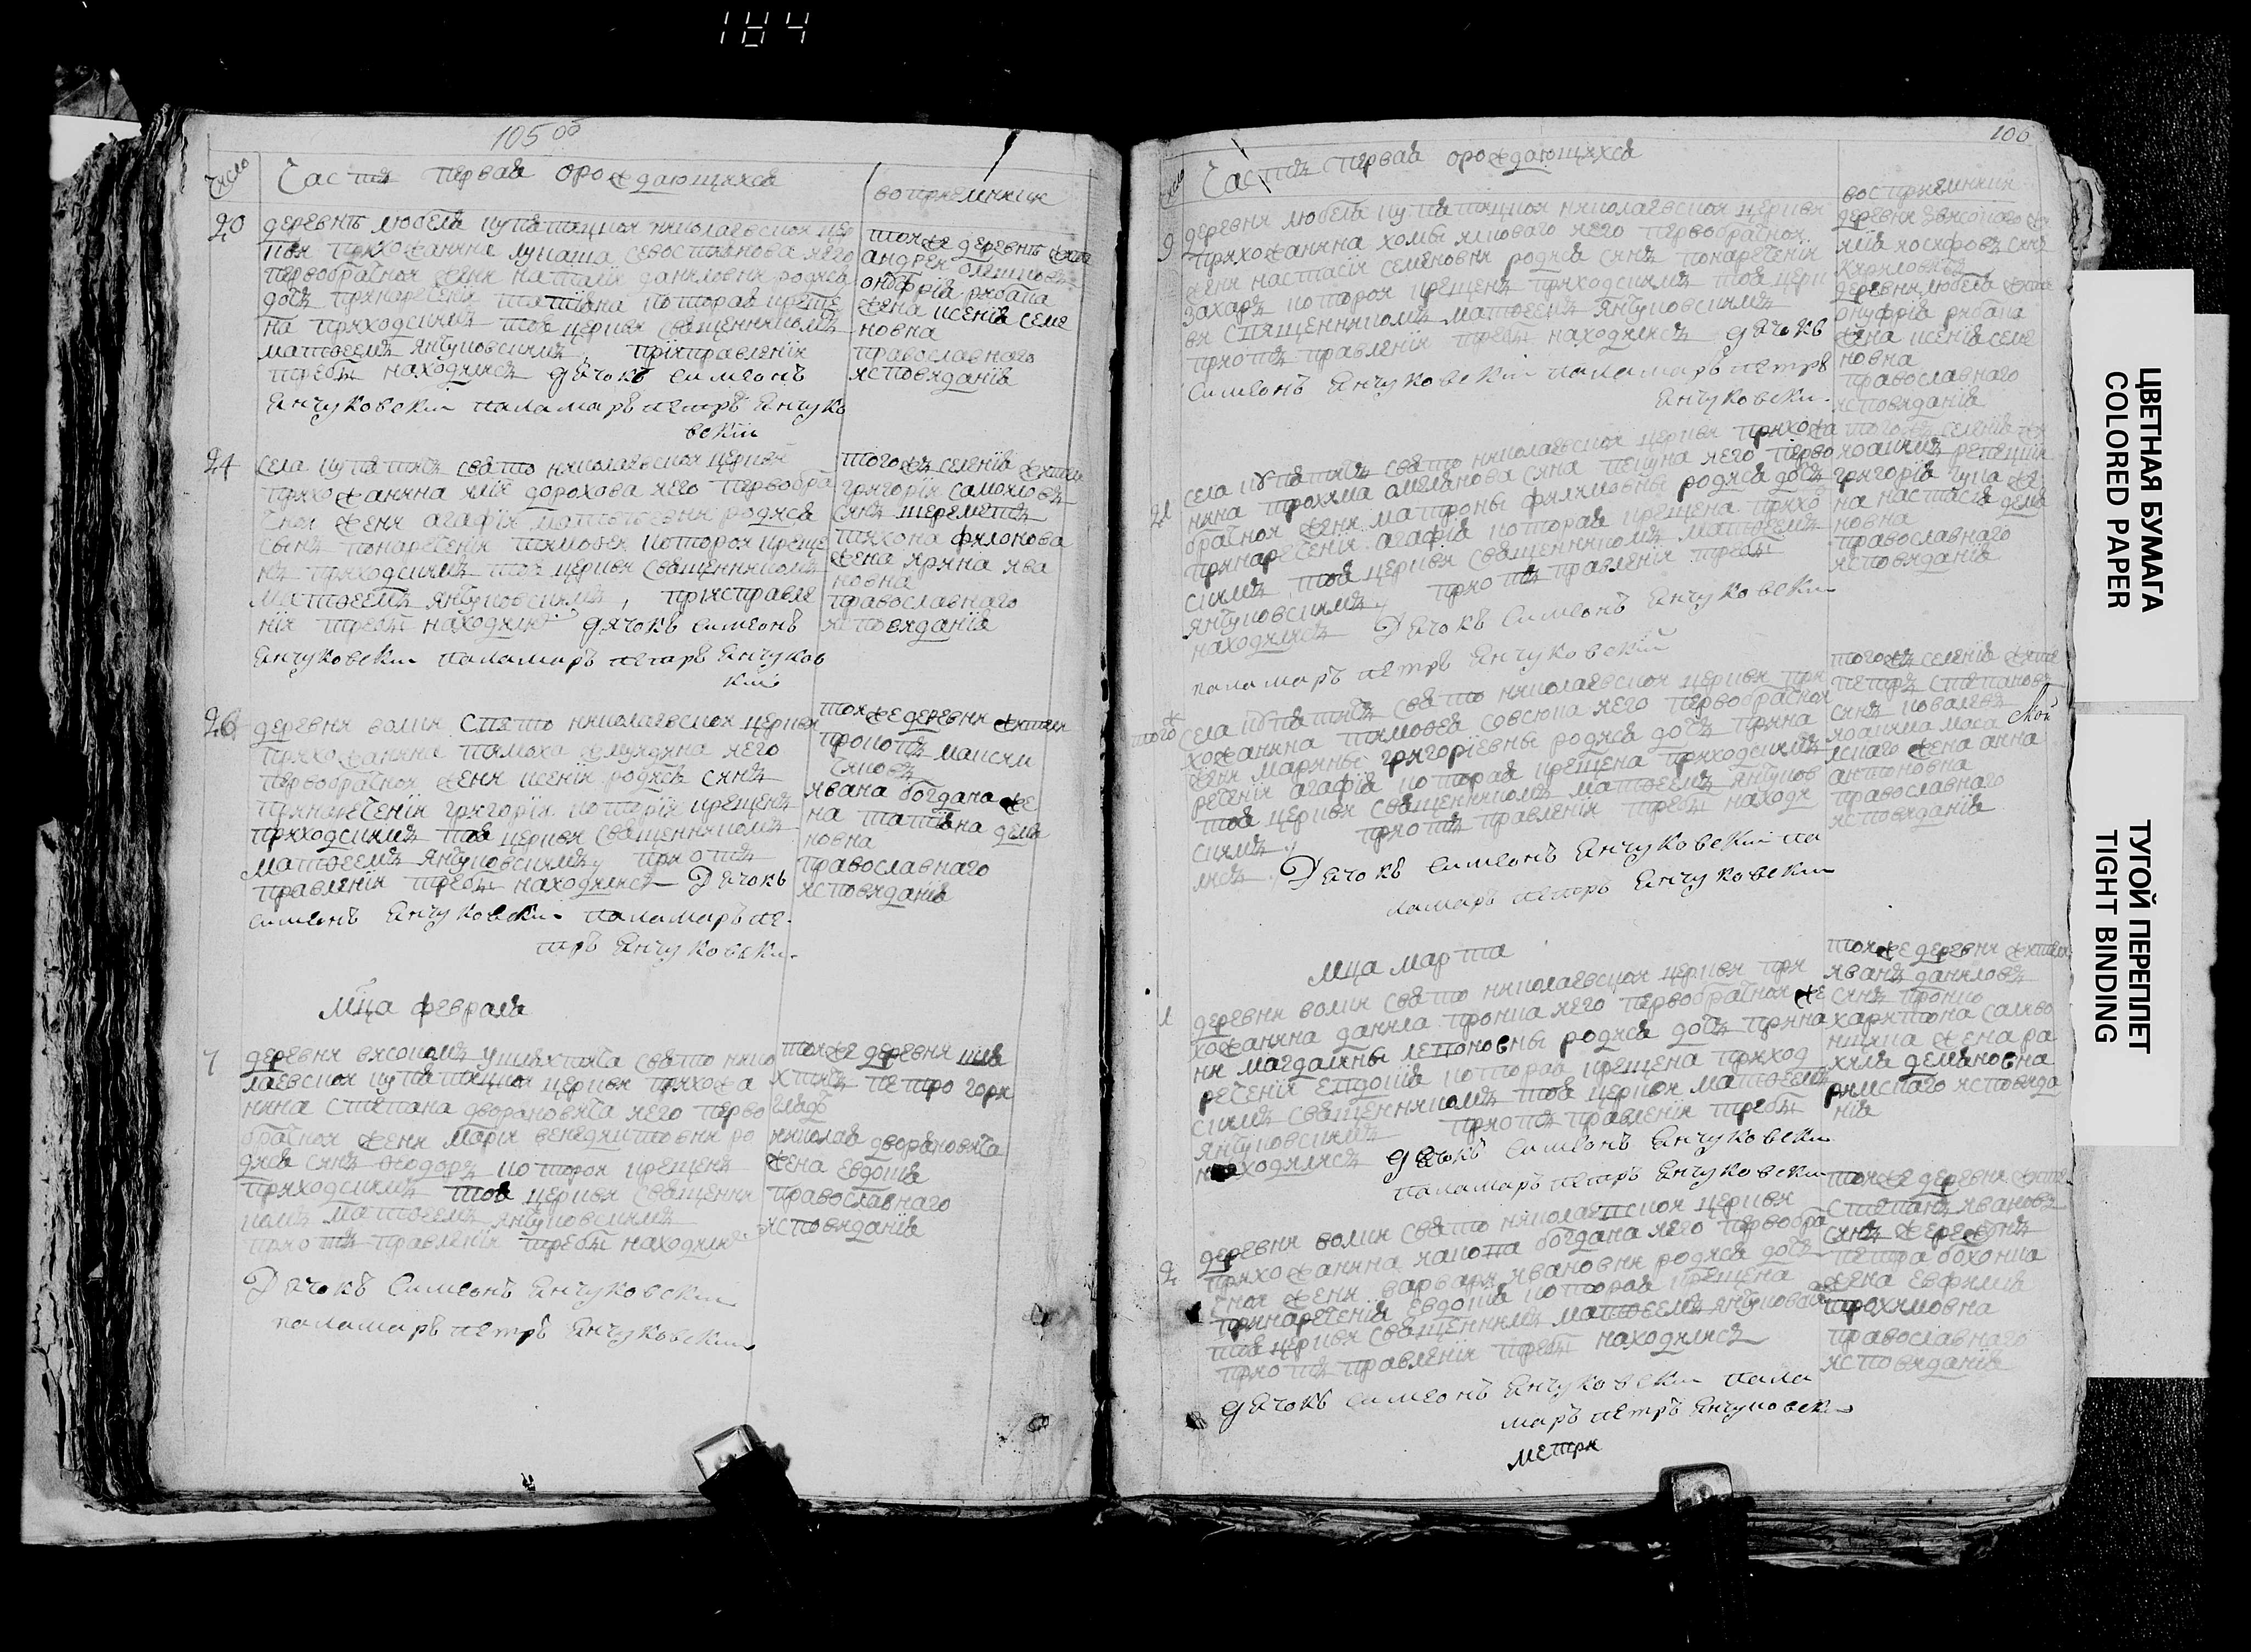 184
105 об
Число
Часть первая о рождающихся
воприемники
20
деревнѣ любеля купятицкоя николаевскоя цер
коя прихожанина лукаша севостянова яего
первобрачноя жени наталіи даниловни родися
дочь принаречения татіяна которая креще
на приходскимъ тоя церкви священникомъ
матѳеемъ янчуковскимъ, приправленія
требы находился дячокъ симеонъ
Янчуковски паламаръ петръ Янчуко
вскіи
тояже деревнѣ жители
андрея олешковъ
онуфрія рибака
жена ксенія семе
новна
православнаго
исповиданія
24
села купятичъ свято николаевскоя церкви
прихожанина иліи дорохова яего первобра
чноя жени агафіи матвѣевни родися
сынъ понаречения тимофея котороя креще
нъ приходскимъ тоя церкви священникомъ
матѳеемъ янчуковскимъ, приисправле
нія требы находился дячокъ симеонъ
Янчуковски паламаръ петръ Янчуков
кіи
тогожъ селенія жители
григорія самоиловъ
синъ шереметъ
тихона филонова
жена ирина ива
новна
православнаго
исповиданія
26
деревни волки свято николаевскоя церкви
прихожанина тимоха жмундина яего
первобрачноя жени ксенія родися синъ
принаречения григорія которія крещенъ
приходскимъ тоя церкви священникомъ
матѳеемъ янчуковскимъ, при отъ
правленія требы находился Дячокъ
симеонъ Янчуковски паламаръ пе
тръ Янчуковски
тояже деревни жители
прокопъ максим
чиковъ
ивана богдана же
на татіяна демя
новна
православнаго
исповиданія
Мца февраля
7
деревни високомъ ушляхтича свято нико
лаевскоя купятицкоя церкви прихожа
нина степана дворановича яего перво
брачноя жени маріи венедиктовни ро
дися синъ ѳеодоръ котороя крещенъ
приходскимъ тоя церкви священни
комъ матѳеемъ янчуковскимъ
при отъ правленія требы находился
Дячокъ Симеонъ Янчуковски
паламаръ петръ Янчуковски
тояже деревни шля
хтичъ петро гори
глядъ
николая дворановича
жена евдошя
православнаго
исповиданія
106
Число
Часть первая о рождающихся
восприемники
9
деревни любеля купятицкоя николаевскоя церкви
прихожанина хомы ялкового яего первобрачноя
жени настасіи семеновни родися синъ понаречения
захаръ котороя крещенъ приходскимъ тоя церк
ви священникомъ матѳеемъ янчуковскимъ
при отъ правленія требы находился дячокъ
Симеонъ Янчуковскіи паламаръ петръ
Янчуковски
илія иосифовъ синъ
Кириловичъ
деревни любеля жители
онуфрія рибака
жена ксенія семе
новна
православнаго
исповиданія
21
села купятичъ свято николаевскоя церкви прихожа
нина трохима омелянова сина пекуна яего перво
брачноя жени матроны филимовны родися дочь
принаречения агафія которая крещена прихо
скимъ тоя церкви священникомъ матѳеемъ
янчуковскимъ, при отъ правленія требы
находился Дячокъ Симеонъ Янчуковски
паламаръ петръ Янчуковскіи
тогожъ селенія
иоакимъ репецкіи
григорія чупа же
на настасія демя
новна
православнаго
исповиданія
тогож
села купятичъ свято николаевскоя церкви при
хожанина тимофея совсюка яего первобрачноя
жени марины григоріевны родися дочь прина
речения агафія которая крещена приходскимъ
тоя церкви священникомъ матѳеемъ янчуков
скимъ, при отъ правленія требы находи
лися Дячокъ симеонъ Янчуковскіи па
ламаръ петръ Янчуковски
тогожъ селенія жите
петръ степановъ
синъ ковалевъ
иоакима маса
лскаго жена анна
антоновна
православнаго
исповиданія
Мца марта
1
деревни волки свято николаевскоя церкви при
хожанина данила пронка яего первобрачноя же
ни магдалины лепоновны родися дочь прина
речения евдошія которая крещена приход
скимъ священникомъ тоя церкви матѳеемъ
янчуковскимъ при отъ правленія требы
находился дячокъ Симеонъ Янчуковски
паламаръ петръ Янчуковски
тояже деревни жители
иванъ даниловъ
синъ пронко
харитона саливо
нчика жена ра
хиля демяновна
римскаго исповида
нія
2
деревни волки свято николаевскоя церкви
прихожанина якопа богдана яего первобра
чноя жени варвари ивановни родися дочь
принаречения евдошія которая крещена
тоя церкви священникмъ матѳеемъ янчуковск
при отъ правленія требы находился
дячокъ симеонъ Янчуковски пала
маръ петръ Янчуковски
тояже деревни жите
степанъ ивановъ
синъ жережунъ
петра бохонка
жена евфимія
трохимовна
православнаго
исповиданія
метри
ЦВЕТНАЯ БУМАГА
COLORED PAPER
ТУГОЙ ПЕРЕПЛЕТ
TIGHT BINDING